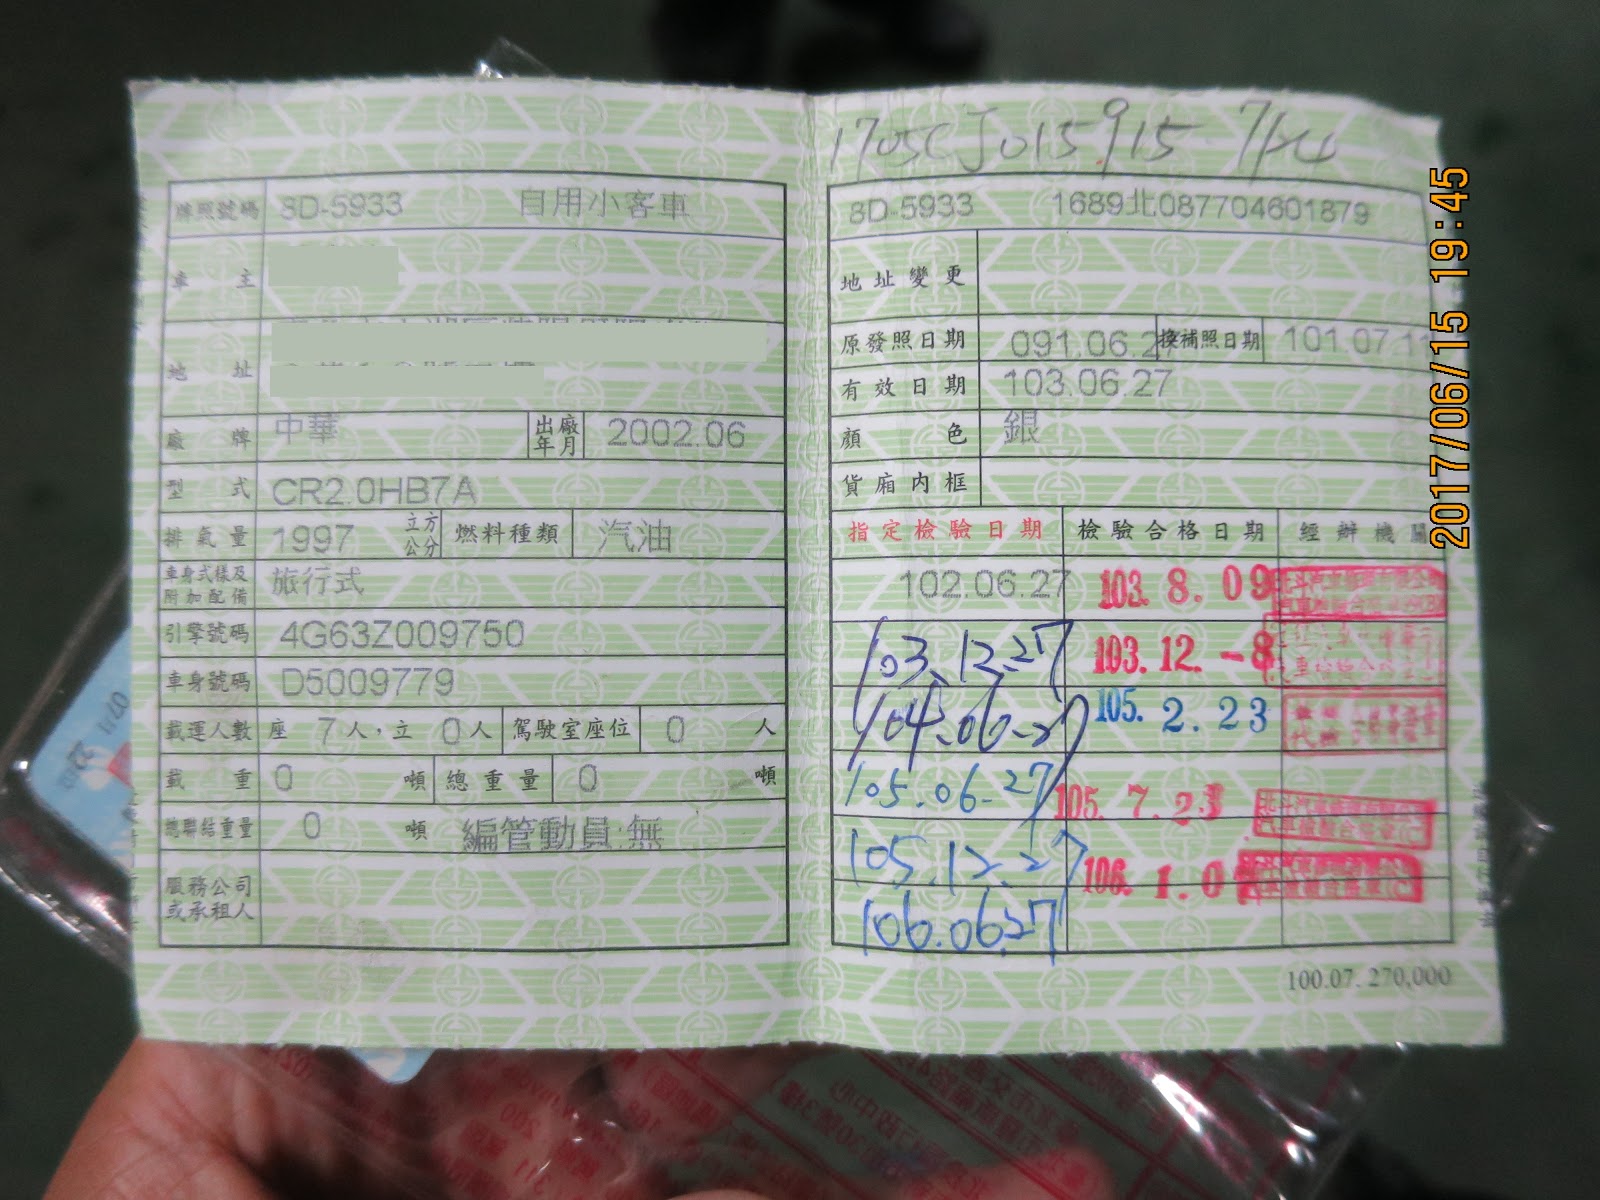 牌照號碼 8D-5933 自用小客車
車主
地址
廠牌 中華 出廠年月 2002.06
型式 CR2.0HB7A
排氣量 1997 立方公分 燃料種類 汽油
車身式樣及附加配備 旅行式
引擎號碼 4G63Z009750
車身號碼 D5009779
載運人數 座 7 人，立 0 人 駕駛室座位 0 人
載重 0 噸 總重量 0 噸
總聯結重量 0 噸 編管動員:無
服務公司或承租人
1705CJ015915
8D-5933 1689北087704601879
地址變更
原發照日期 091.06.27 換補照日期 101.07.11
有效日期 103.06.27
顏色 銀
貨廂內框
指定檢驗日期 檢驗合格日期 經辦機關
102.06.27 103.8.09
103.12.27 103.12.-8
104.06.27 105.2.23
105.06.27 105.7.23
105.12.27 106.1.0
106.06.27
100.07. 270,000
2017/06/15 19:45